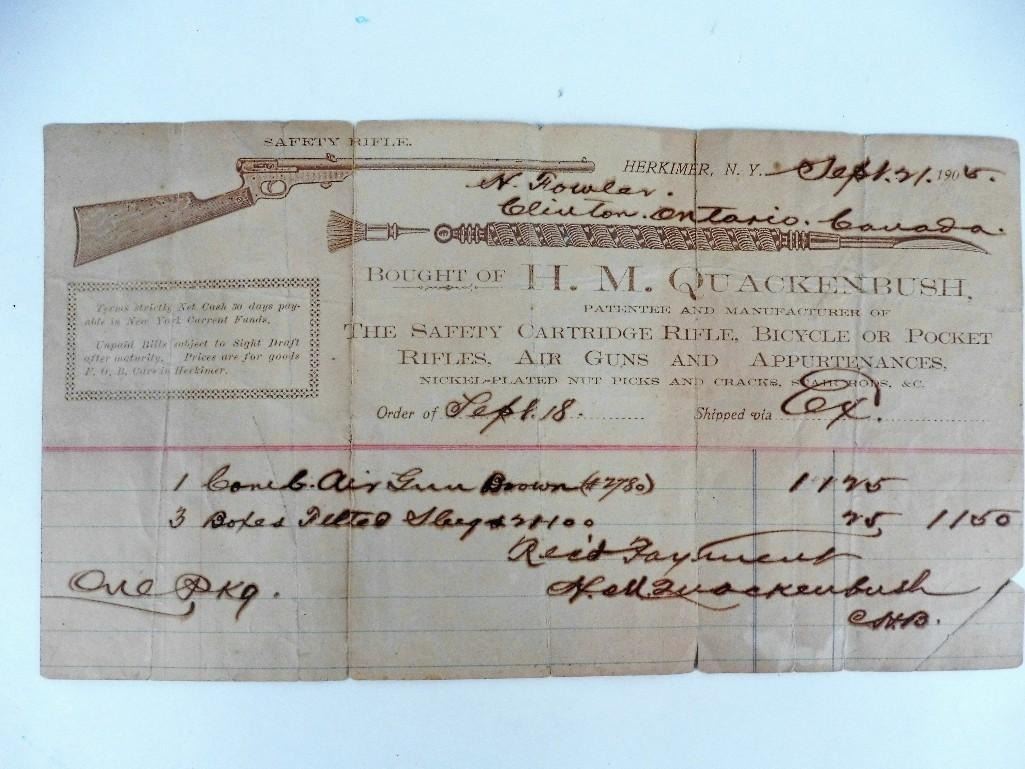 SAFETY RIFLE.
HERKIMER, N. Y. Sept. 21. 1905.
N. Fowler.
Clinton. Ontario. Canada.
BOUGHT OF H. M. QUACKENBUSH,
PATENTEE AND MANUFACTURER OF
THE SAFETY CARTRIDGE RIFLE, BICYCLE OR POCKET
RIFLES, AIR GUNS AND APPURTENANCES,
NICKEL-PLATED NUT PICKS AND CRACKS, RODS, &C.
Terms strictly Net Cash 30 days pay-
able in New York Current Funds.
Unpaid Bills subject to Sight Draft
after maturity. Prices are for goods
F. O. B. Cars in Herkimer.
Order of Sept. 18. Shipped via Ex.
1 Comb. Air Gun Brown (#2780) 11 25
3 Boxes Felted Slugs 25 11 50
Rec'd Payment
One Pkg. H. M. Quackenbush